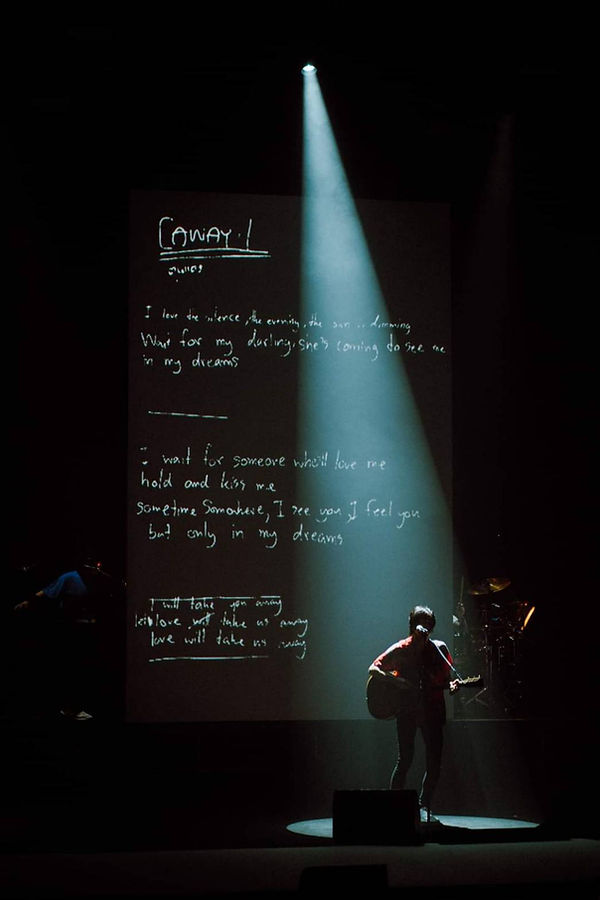 [AWAY.]
I love the silence, the evening, the sun is dimming
Wait for my darling, she's coming to see me
in my dreams
I wait for someone who'll love me
hold and kiss me
sometime Somewhere, I see you, I feel you
but only in my dreams
I will take you away
love will take us away
love will take us away